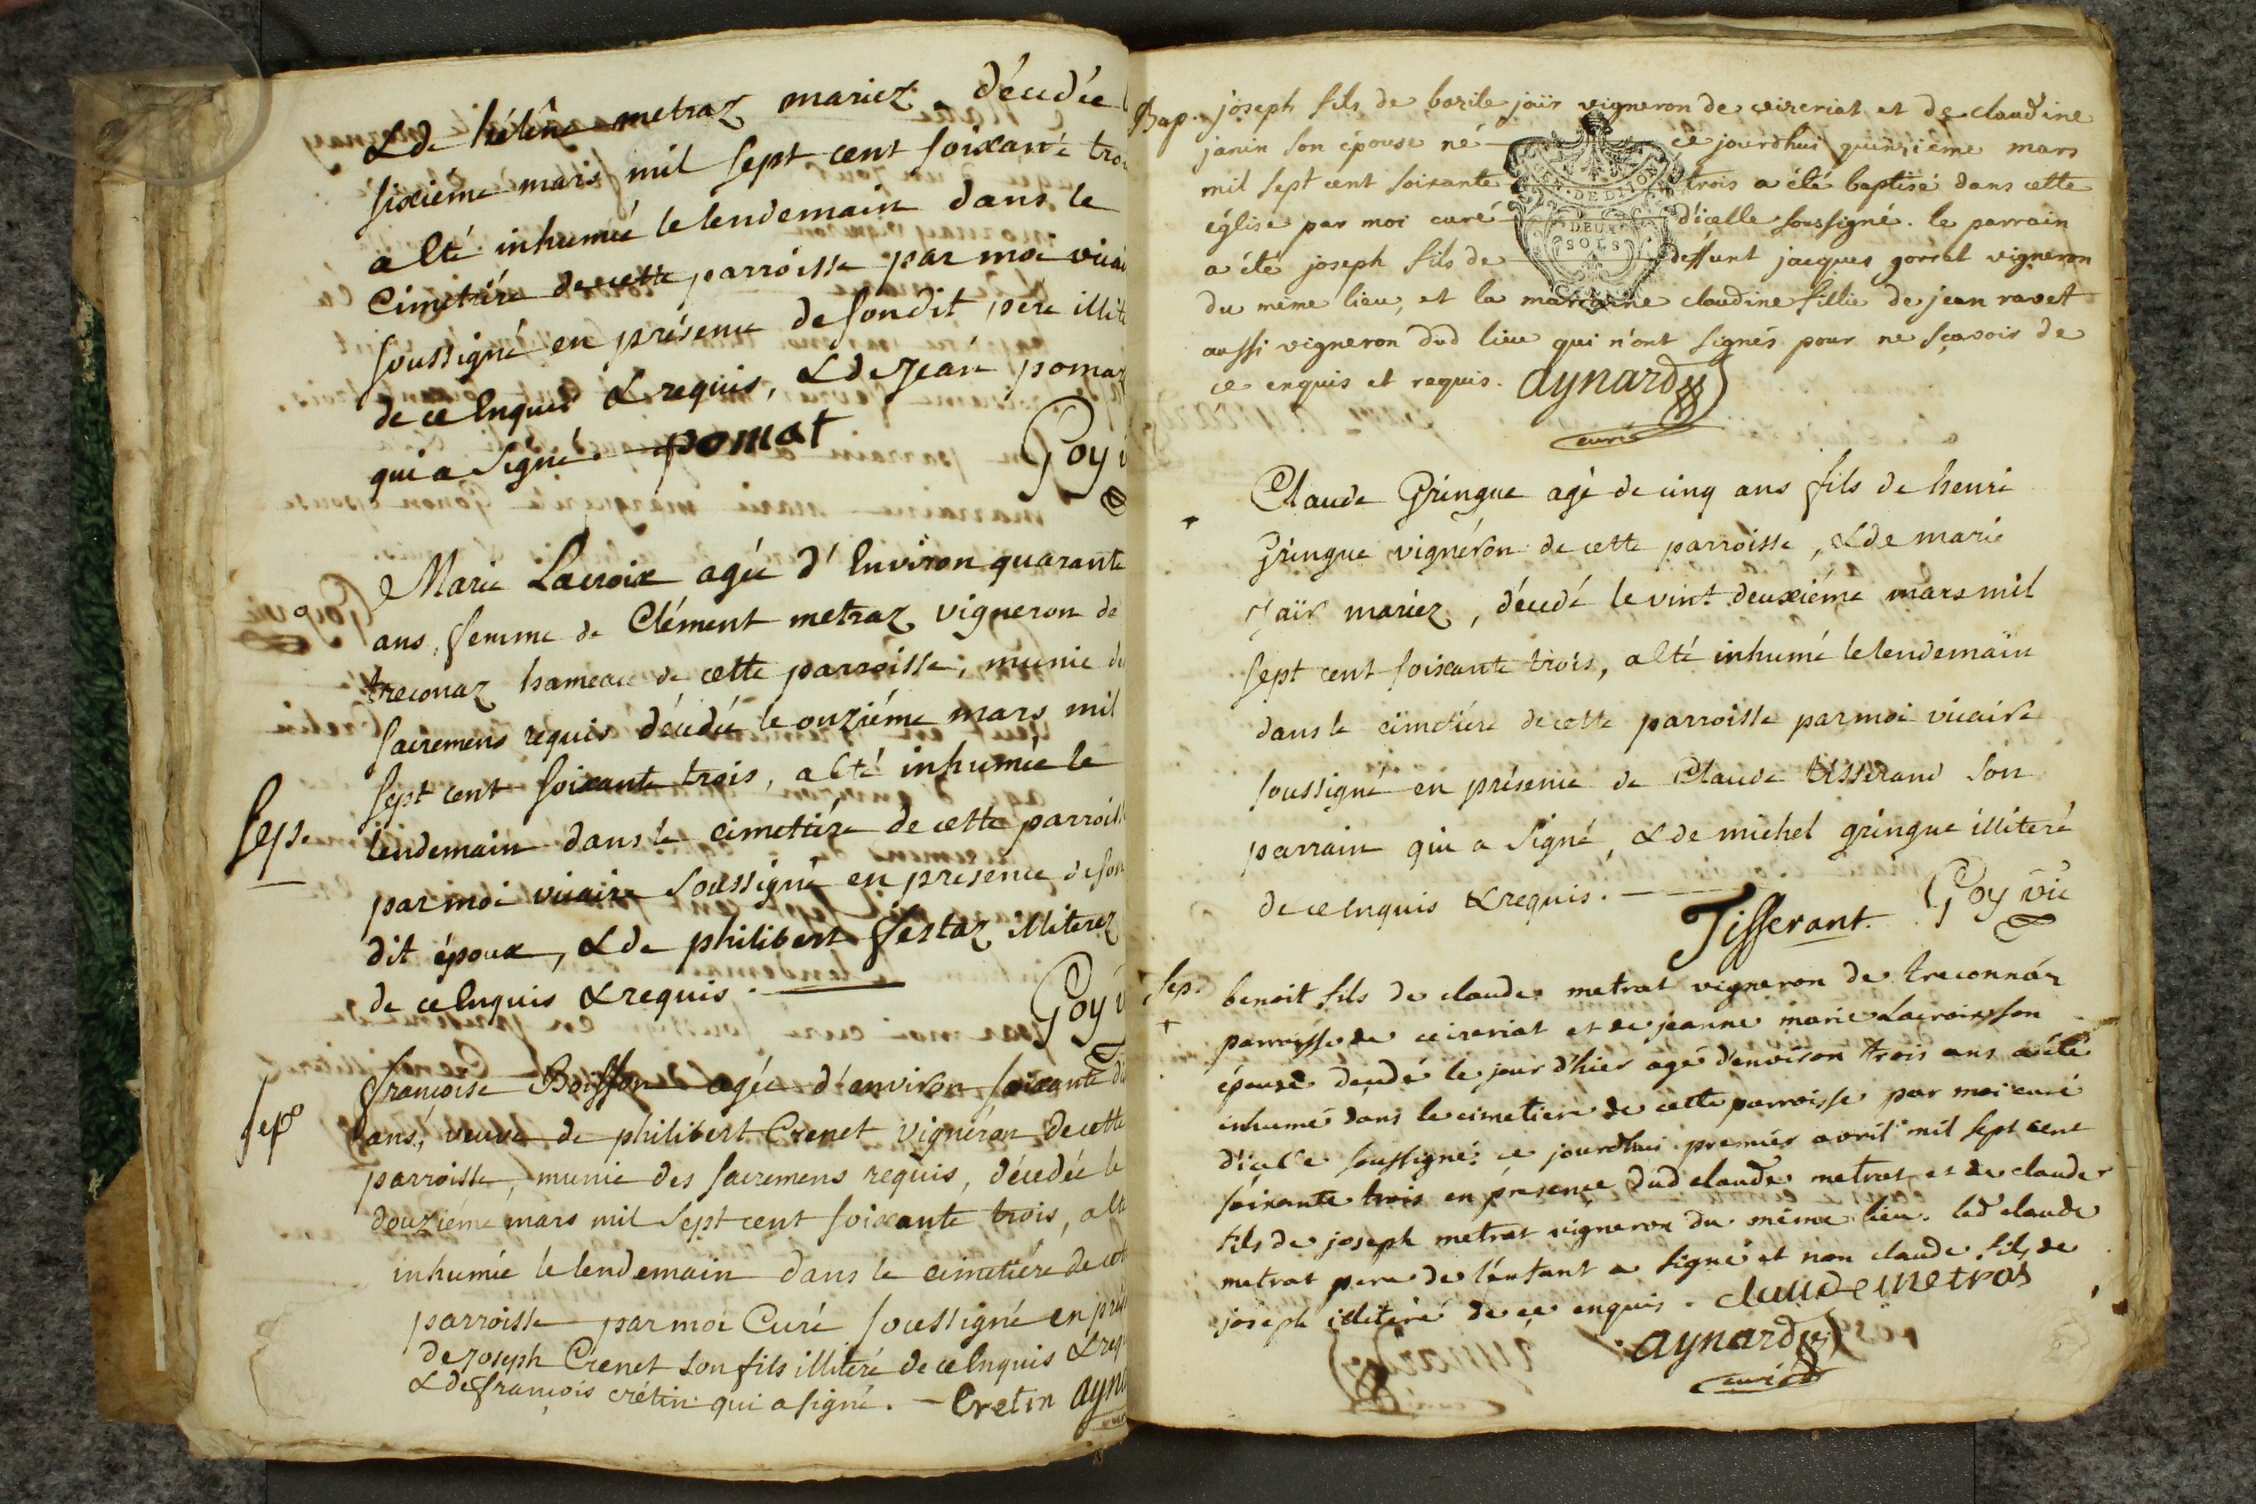 & de hélêne metraz mariez, décedée
sixieme mars mil sept cent soixante trois
a eté inhumée le lendemain dans le
Cimetiére de cette parroisse par moi vicai
soussigné en présence de son dit pere illite
de ce enquis & requis, & de jean pomaz
qui a signé. pomat
Goy v
Marie Lacroix agée d'environ quarante
ans, femme de Clément metraz vigneron de
treconaz hameau de cette parroisse, munie de
sacremens requis décédée le onziéme mars mil
Sep.
sept cent soixante trois, a eté inhumée le
lendemain dans le cimettiére de cette parroiss
par moi vicaire soussigné en présence de son
dit époux, & de philibert festaz illiterez
de ce enquis & requis.
Goy v
Sep.
françoise Boisson agée d'environ soixante di
ans, veuve de philibert Crenet vignéron de cette
parroisse, munie des sacremens requis, décedée le
douziéme mars mil sept cent soixante trois, a eté
inhumée le lendemain dans le cimetiére de cet
parroisse par moi Curé soussigné en prés
de joseph Crenet son fils illiteré de ce enquis & req
& de françois crétin qui a signé. - Cretin ayna
Bap. joseph fils de bazile jaïr vigneron de ceizeriat et de claudine
janin son épouse né ce jourdhui quinzième mars
mil sept cent soixante trois a été baptisé dans cette
église par moi curé d'icelle soussigné. le parrain
GEN. DE DIJON
DEUX
SOLS
a été joseph fils de deffunt jacques gorrat vigneron
du même lieu, et la marraine claudine fille de jean ravet
aussi vigneron dud lieu qui n'ont signés pour ne sçavoir de
ce enquis et requis. aynard
curé
Claude Gringue agé de cinq ans fils de henri
+
Gringue vignéron de cette parroisse, & de marie
jaïr mariez, décedé le vint deuxiéme mars mil
sept cent soixante trois, a eté inhumé le lendemain
dans le cimetiére de cette parroisse par moi vicaire
soussigné en présence de Claude tisserand son
parrain qui a signé, & de michel gringue illiteré
de ce enquis & requis.
Tisserant. Goy vic
Sep. benoit fils de claude metrat vigneron de treconnaz
+
parroisse de ceizeriat et de jeanne marie Lacroix son
épouse decédé le jour d'hier agé d'environ trois ans a été
inhumé dans le cimetiere de cette parroisse par moi curé
d'icelle soussigné ce jourdhui premier avril mil sept cent
soixante trois en présence dud claude metrat et de claude
fils de joseph metrat vigneron du même lieu. led claude
metrat pere de l'enfant a signé et non claude fils de
joseph illiteré de ce enquis. claude metras
aynard
curé